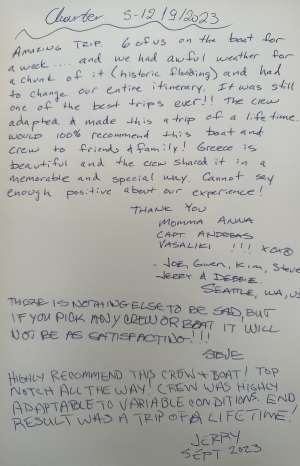 Charter 5-12/9/2023
AMAZING TRIP. 6 of us on the boat for
a week.... and we had awful weather for
a chunk of it (historic flooding) and had
to change our entire itinerary. It was still
one of the best trips ever!! The crew
adapted & made this a trip of a life time.
WOULD 100% recommend this boat and
crew to friends & family! Greece is
beautiful and the crew shared it in a
memorable and special way. Cannot say
enough positive about our experience!
THANK YOU
MOMMA ANNA
CAPT ANDREAS
VASALIKI !!! XOXO
- JOE, Gwen, Kim, Steve
JERRY & DEBBIE
SEATTLE, WA, US
THERE IS NOTHING ELSE TO BE SAID, BUT
IF YOU PICK ANY CREW OR BOAT IT WILL
NOT BE AS SATISFACTING!!!
STEVE
HIGHLY RECOMMEND THIS CREW & BOAT! TOP
NOTCH ALL THE WAY! CREW WAS HIGHLY
ADAPTABLE TO VARIABLE CONDITIONS. END
RESULT WAS A TRIP OF A LIFETIME!
JERRY
SEPT 2023